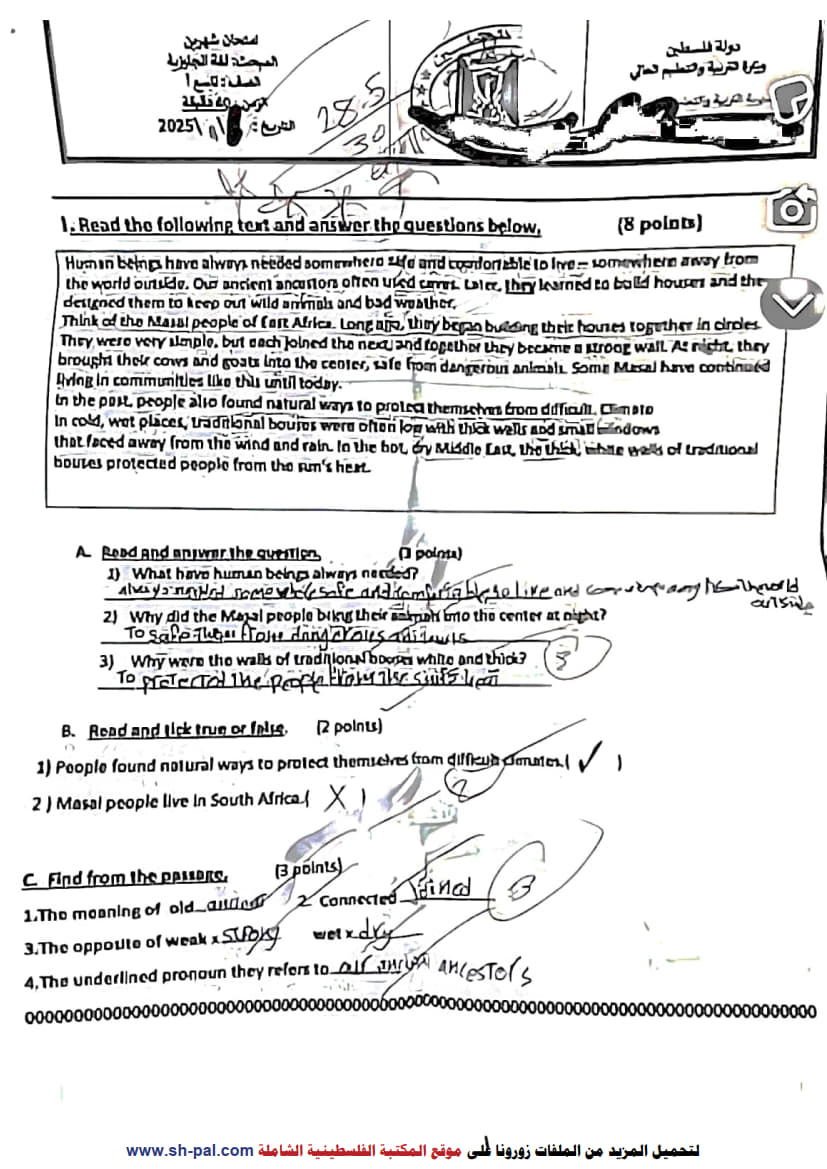 دولة فلسطين
وزارة التربية والتعليم العالي
امتحان شهرين
المبحث: لغة انجليزية
الصف: تاسع أ
الزمن: 40 دقيقة
التاريخ: 2025
28.5
30
1. Read the following text and answer the questions below. (8 points)
Human beings have always needed somewhere safe and comfortable to live – somewhere away from
the world outside. Our ancient ancestors often used caves. Later, they learned to build houses and the
designed them to keep out wild animals and bad weather.
Think of the Masai people of East Africa. Long ago, they began building their houses together in circles.
They were very simple, but each joined the next, and together they became a strong wall. At night, they
brought their cows and goats into the center, safe from dangerous animals. Some Masai have continued
living in communities like this until today.
In the past, people also found natural ways to protect themselves from difficult. Climate
In cold, wet places, traditional houses were often low with thick walls and small windows
that faced away from the wind and rain. In the hot, dry Middle East, the thick, white walls of traditional
houses protected people from the sun's heat.
A. Read and answer the question. (3 points)
1) What have human beings always needed?
always needed somewhere safe and comfortable to live and world
outside
2) Why did the Masai people bring their animals into the center at night?
To safe from dangerous animals
3) Why were the walls of traditional houses white and thick?
To protected the people from the sun's heat
3
B. Read and tick true or false. (2 points)
1) People found natural ways to protect themselves from difficult climates.( ✓ )
2 ) Masai people live in South Africa.( X )
2
C. Find from the passage. (3 points)
1.The meaning of old ancient 2 Connected Joined
3
3.The opposite of weak x strong wet x dry
4.The underlined pronoun they refers to our ancestors
لتحميل المزيد من الملفات زورونا على موقع المكتبة الفلسطينية الشاملة www.sh-pal.com